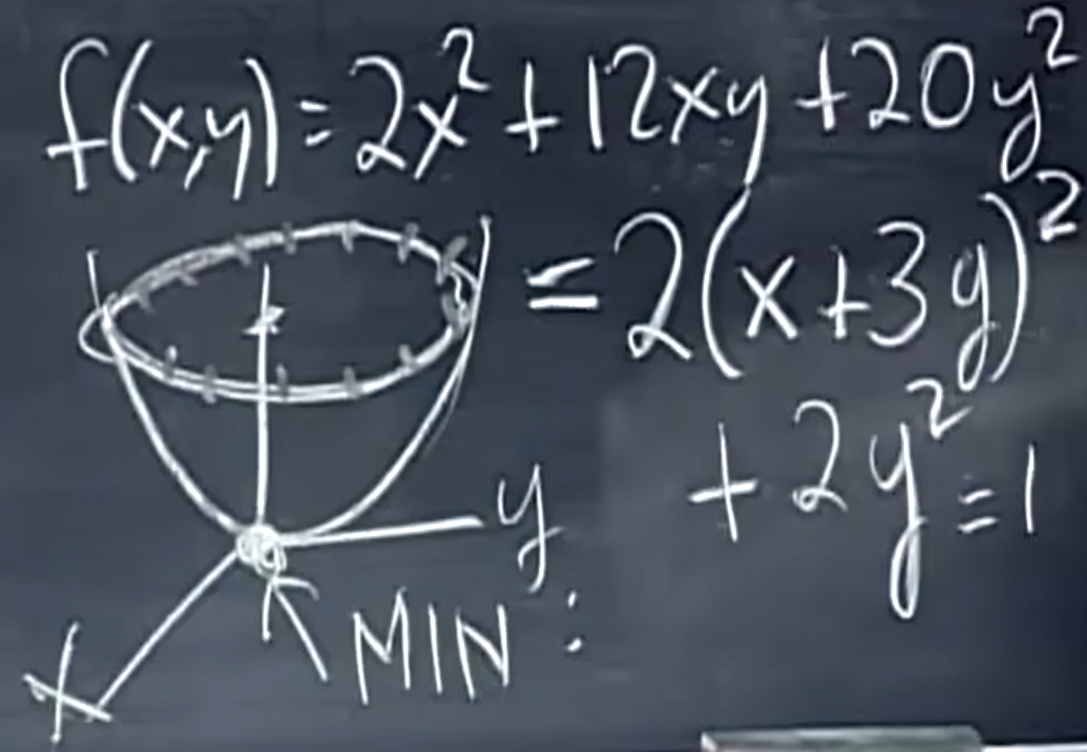 f(x,y) = 2x² + 12xy + 20y²
= 2(x+3y)²
+ 2y² = 1
y
MIN:
X